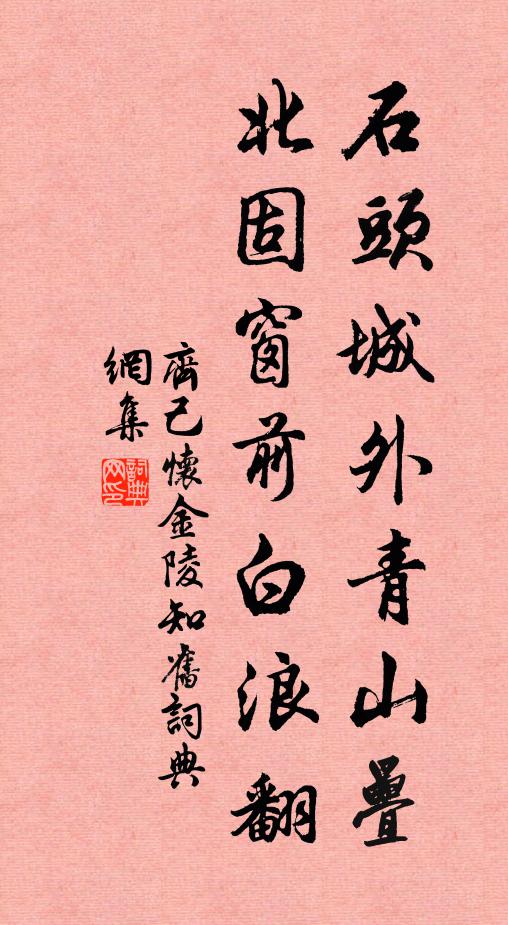 石頭城外青山疊
北固窗前白浪翻
齊己懷金陵知舊詞典
網集
詞典網印